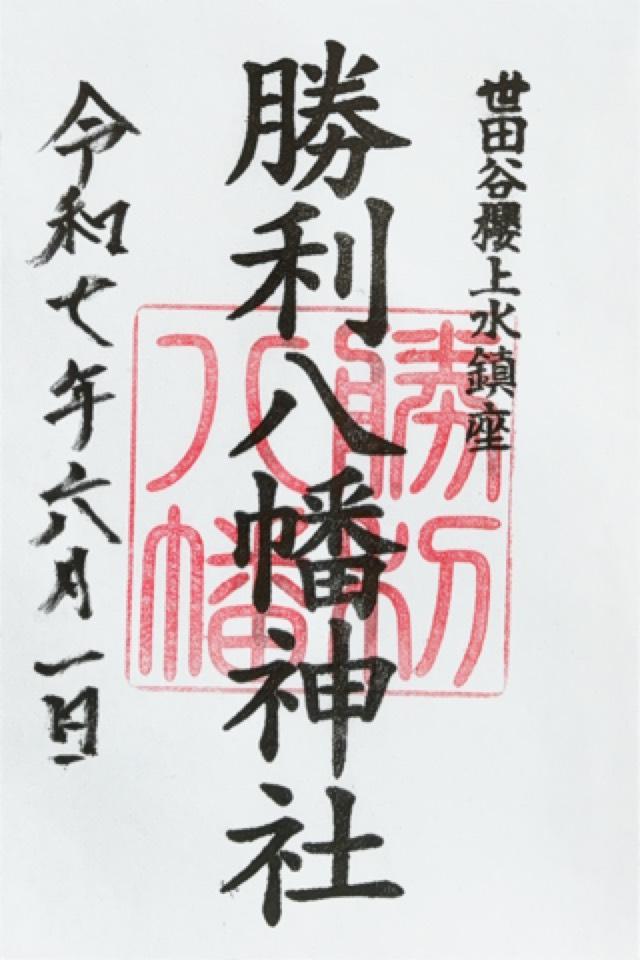 世田谷櫻上水鎮座
勝利八幡神社
勝利
八幡
令和七年六月一日